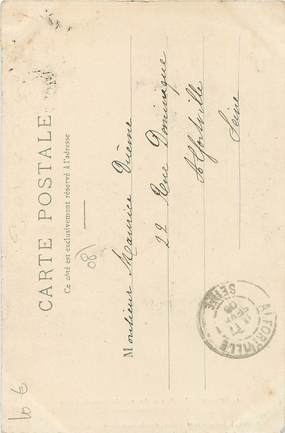 CARTE POSTALE
Ce côté est exclusivement réservé à l'adresse
Monsieur Maurice
22 Rue Dominique
Alfortville
Seine
ALFORTVILLE
SEINE
(80
10 €